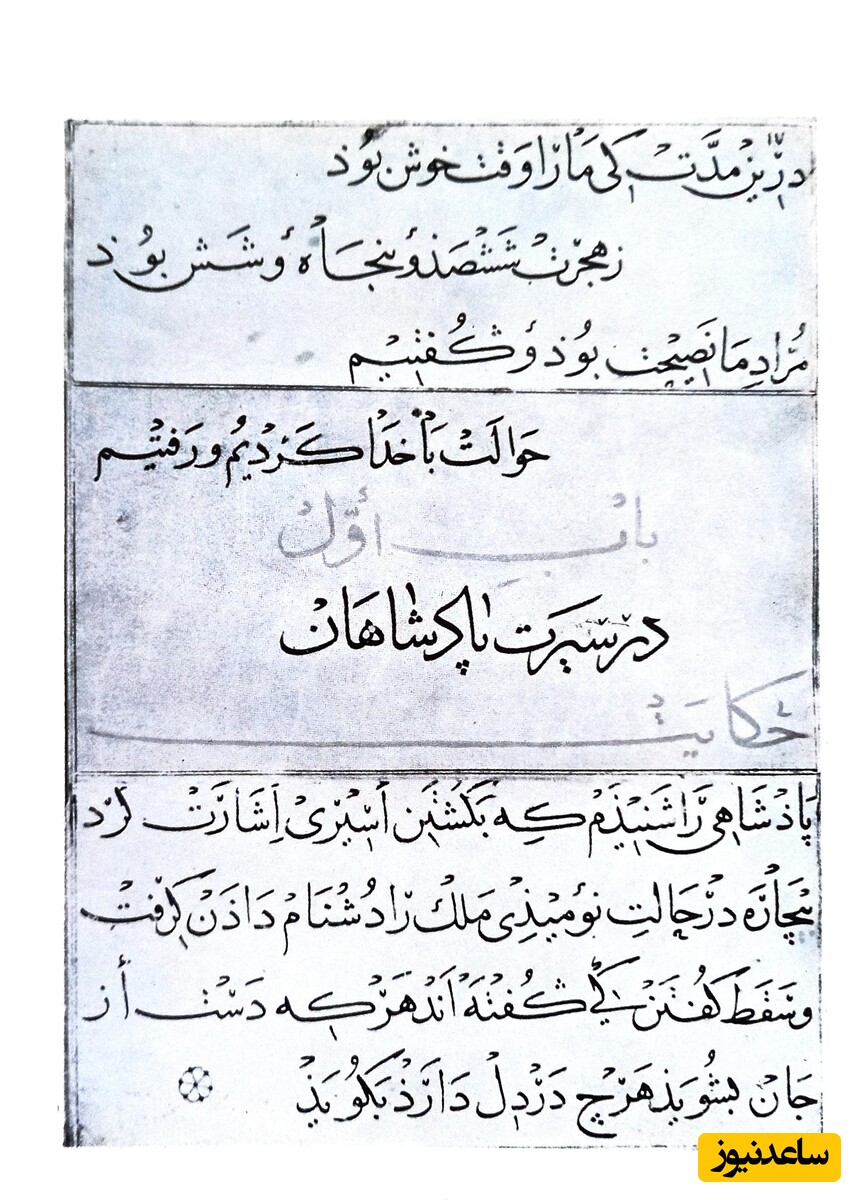 درین مدّت کی ما را وقت خوش بوذ
زهجرت ششصذ و پنجاه و شش بوذ
مُرادِ ما نصیحت بوذ و کُفتیم
حوالت با خدا کردیم و رفتیم
باب اوّل
در سیرت پادشاهان
حکایت
پاذشاهی را شنیذم که بکشتن اسیری اِشارت کرد
بیچاره در حالتِ نومیذی ملک را دُشنام داذن کرفت
وسقط کفتن کی کفته اند هر که دست از
جان بشویذ هرچ در دل دارذ بکویذ
ساعدنیوز